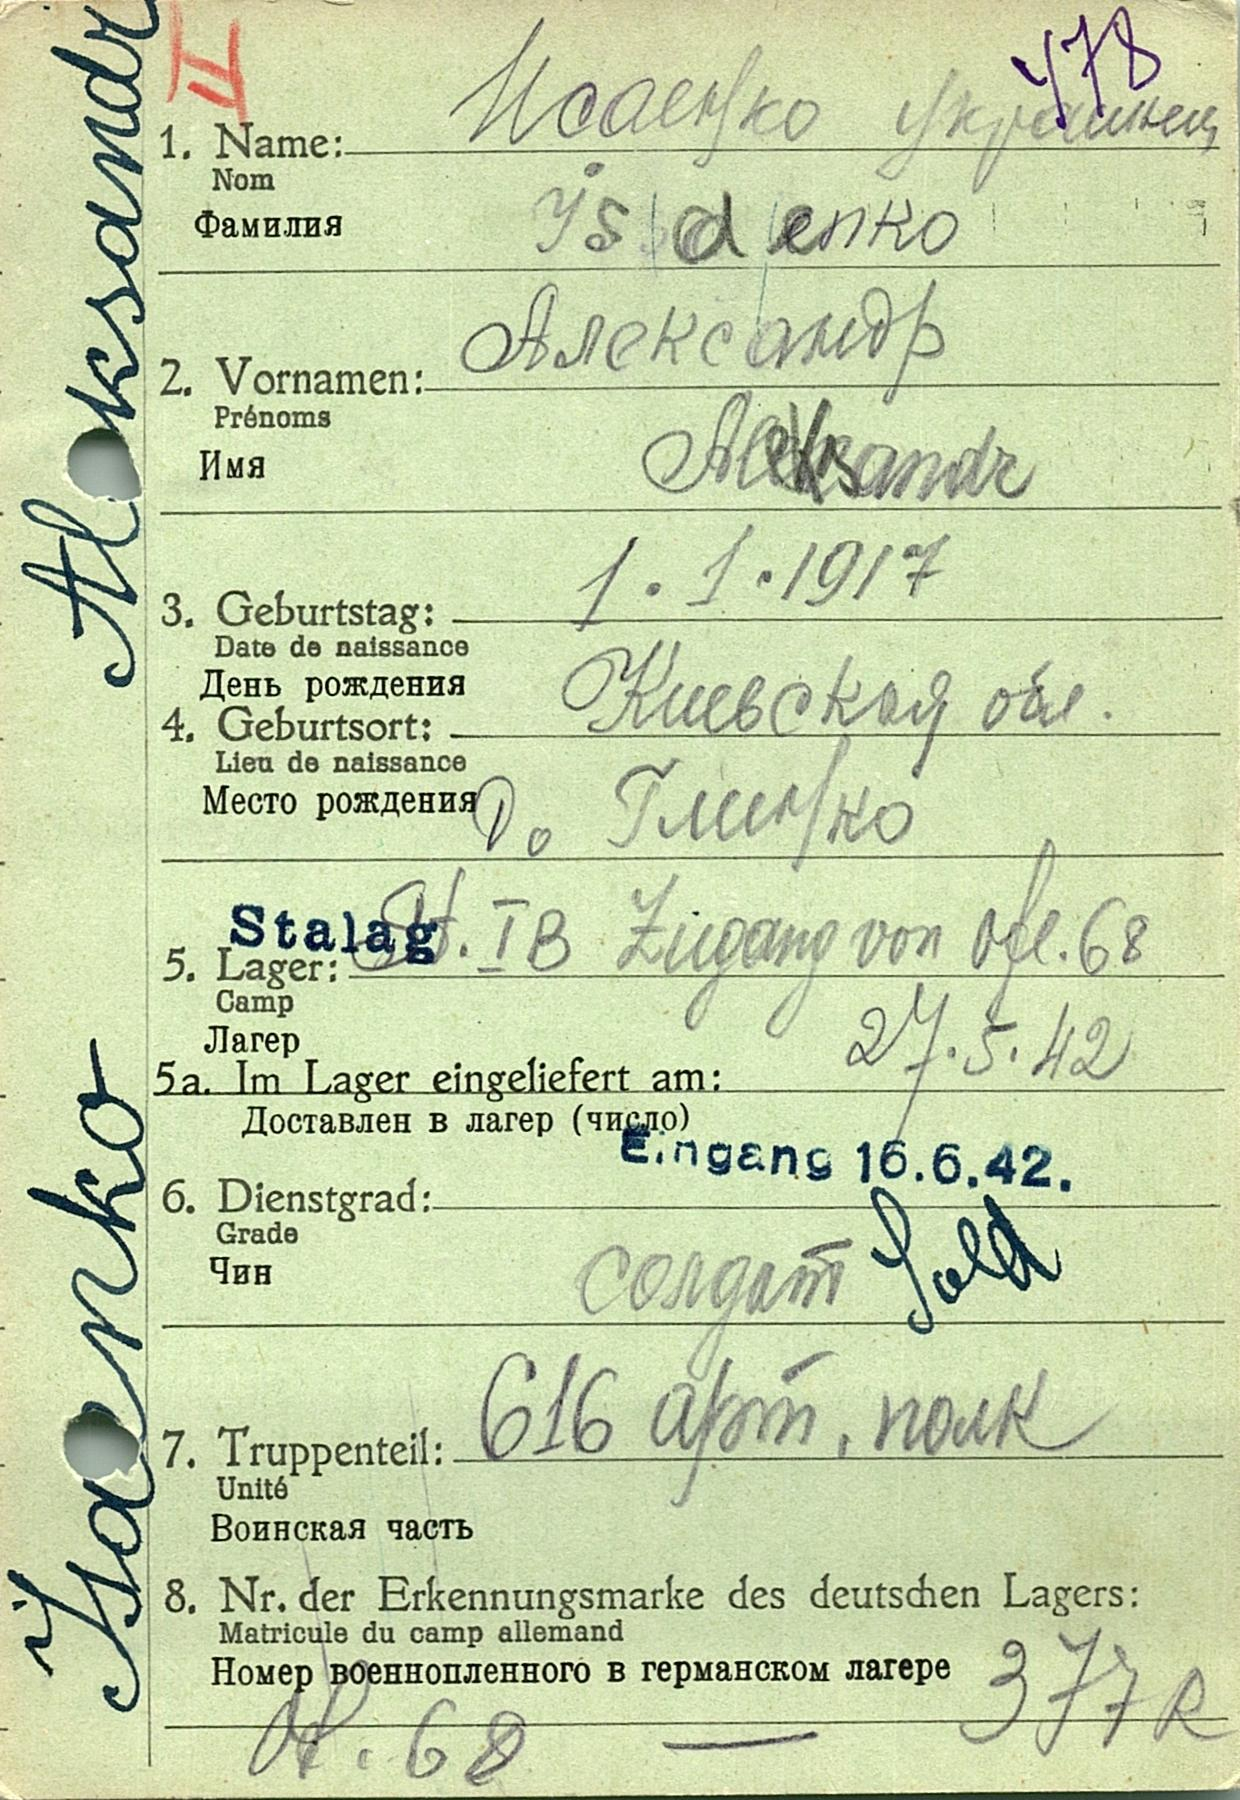 Isaenko Aleksandr
II
478
Исаенко украинец
1. Name:
Nom
Фамилия
Isaenko
Александр
2. Vornamen:
Prénoms
Имя
Aleksandr
1.1.1917
3. Geburtstag:
Date de naissance
День рождения
Киевская обл.
4. Geburtsort:
Lieu de naissance
Место рождения
Глинко
Stalag
St. IB Zugang von Ofl. 68
5. Lager:
Camp
Лагер
27.5.42
5a. Im Lager eingeliefert am:
Доставлен в лагер (число)
Eingang 16.6.42.
6. Dienstgrad:
Grade
Чин
солдат Sold
616 арт. полк
7. Truppenteil:
Unité
Воинская часть
8. Nr. der Erkennungsmarke des deutschen Lagers:
Matricule du camp allemand
Номер военнопленного в германском лагере
377 R
Of. 68 —